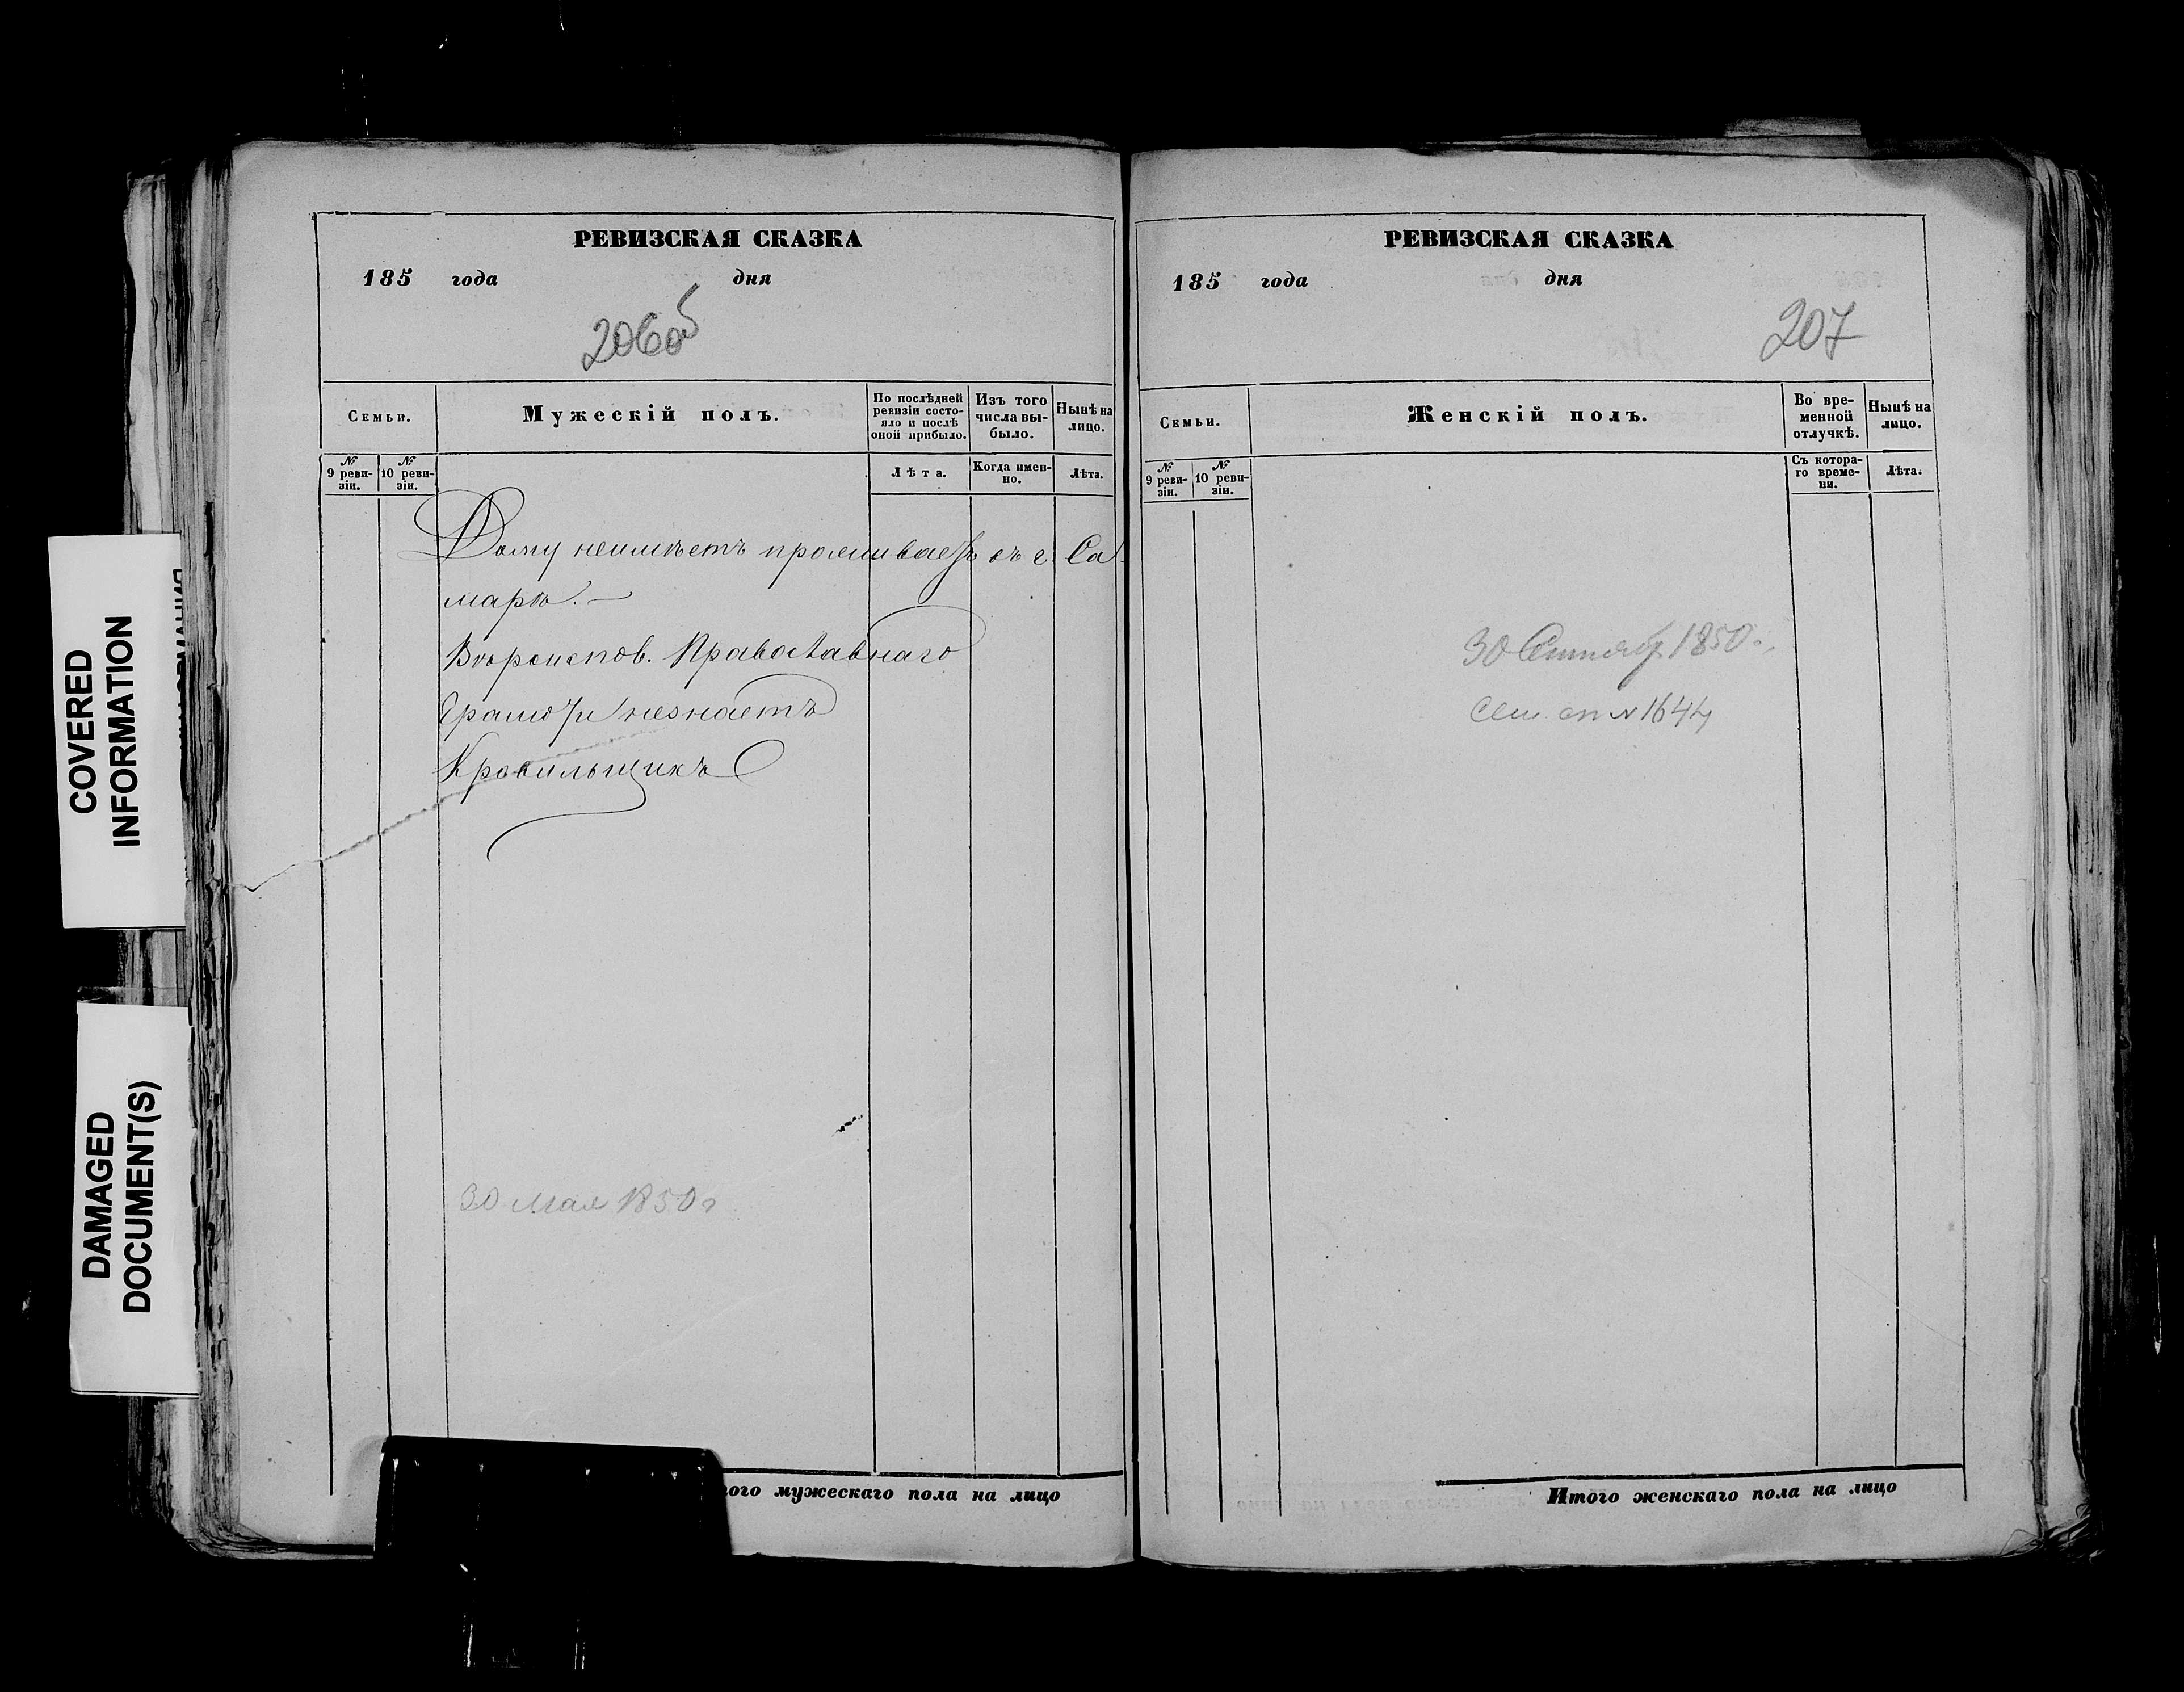 COVERED
INFORMATION
DAMAGED
DOCUMENT(S)
РЕВИЗСКАЯ СКАЗКА
185 года дня
206об
Семьи.
Мужескій полъ.
По послѣдней ревизіи состо-
яло и послѣ
оной прибыло.
Изъ того
числа вы-
было.
Нынѣ на
лицо.
№ 9 реви-
зіи.
№ 10 реви-
зіи.
Лѣта.
Когда имен-
но.
Лѣта.
Дому неимѣетъ проживаетъ въ г. Са
марѣ. —
Вѣроисповѣд. Православнаго
Грамоти незнаетъ
Кровильщикъ
30 Мая 1850 г
ого мужескаго пола на лицо
РЕВИЗСКАЯ СКАЗКА
185 года дня
207
Семьи.
Женскій полъ.
Во вре-
менной
отлучкѣ.
Нынѣ на
лицо.
№ 9 реви-
зіи.
№ 10 реви-
зіи.
Съ котора-
го време-
ни.
Лѣта.
30 Сентября 1850 г.
сем сп № 1644
Итого женскаго пола на лицо